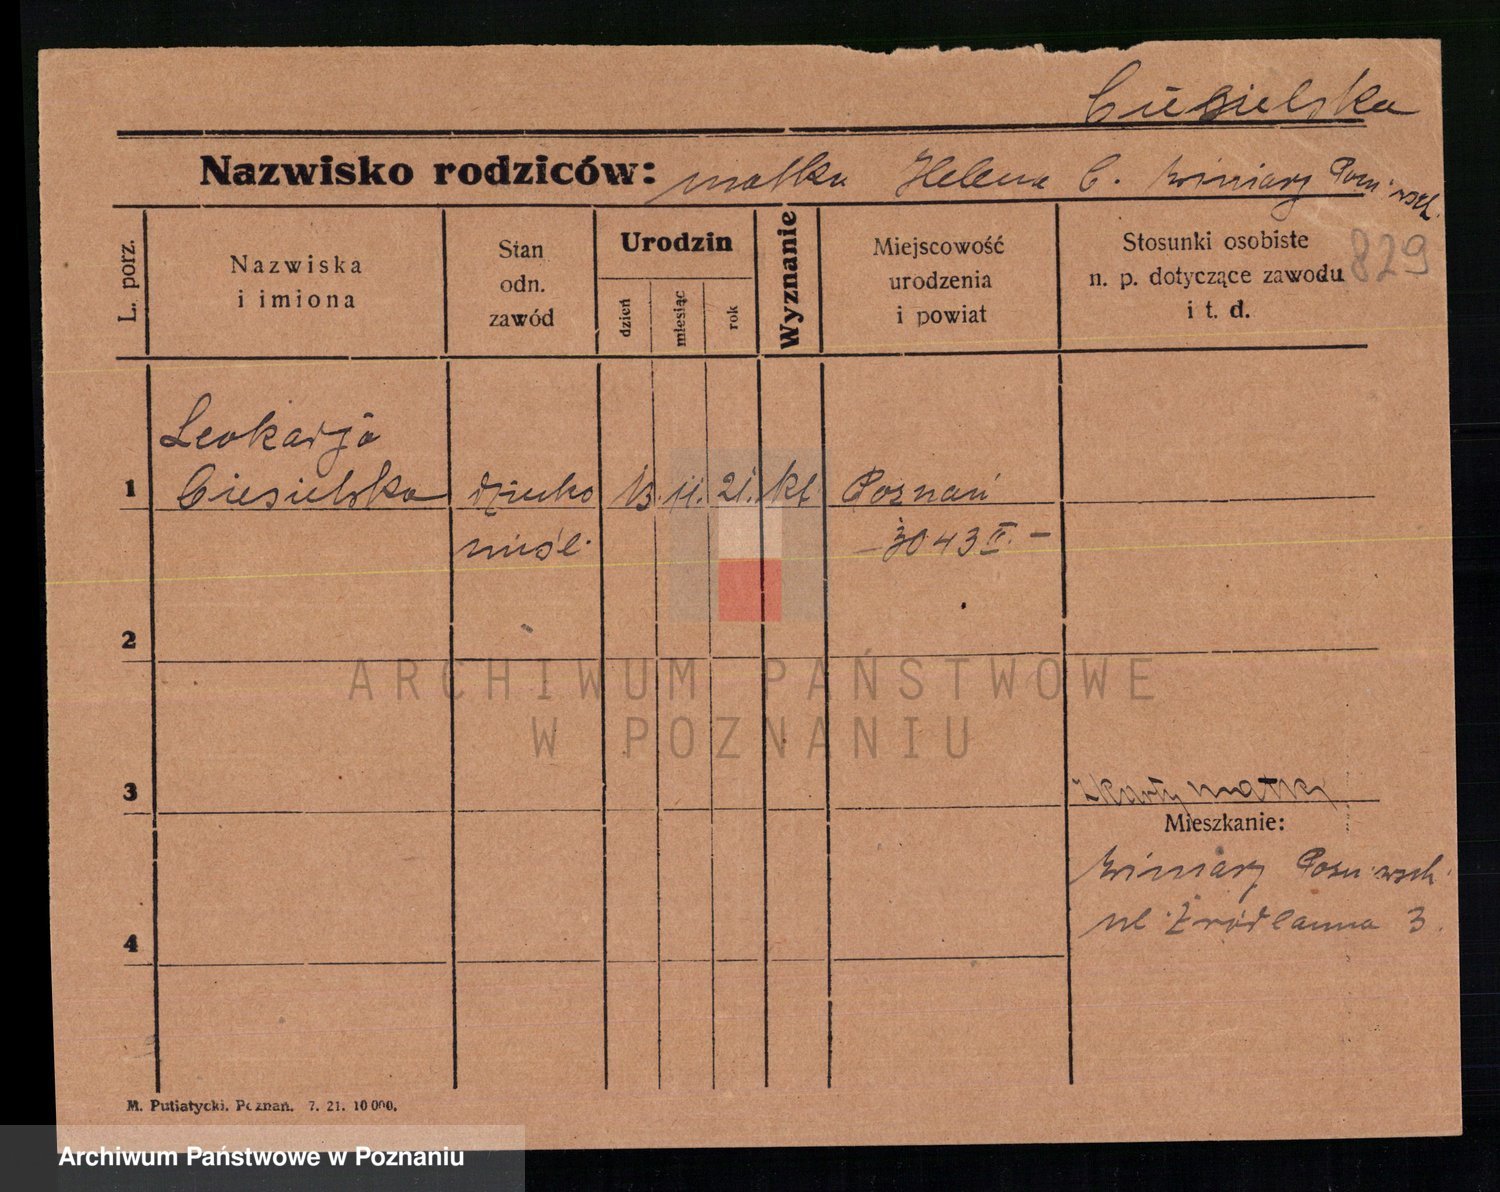 Ciesielska
Nazwisko rodziców: matka Helena C. Winiary Pozn. wsch.
829
L. porz.
Nazwiska
i imiona
Stan
odn.
zawód
Urodzin
dzień
miesiąc
rok
Wyznanie
Miejscowość
urodzenia
i powiat
Stosunki osobiste
n. p. dotyczące zawodu
i t. d.
Leokadja
1 Ciesielska dziecko 13. 11. 21. kt. Poznań
nieśl. – 3043 II. –
2
ARCHIWUM PAŃSTWOWE
W POZNANIU
3 z karty matki
Mieszkanie:
Winiary Pozn. wsch.
ul. Źródlanna 3.
4
M. Putiatycki, Poznań. 7. 21. 10 000.
Archiwum Państwowe w Poznaniu